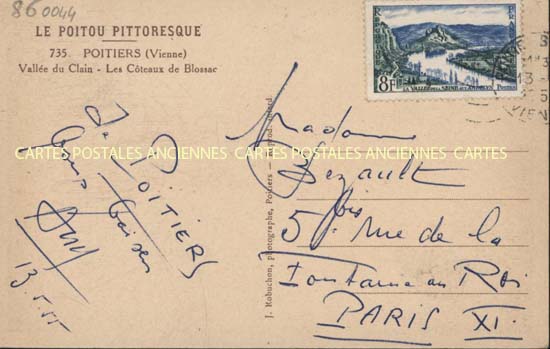 860044
LE POITOU PITTORESQUE
735. POITIERS (Vienne)
Vallée du Clain - Les Côteaux de Blossac
8F
LA VALLÉE DE LA SEINE AUX ANDELYS
Postes
CARTES POSTALES ANCIENNES CARTES POSTALES ANCIENNES CARTES
De POITIERS
13.5.55
J. Robuchon, photographe, Poitiers
Madame
Bezault
5 bis rue de la
Fontaine au Roi
PARIS XI.